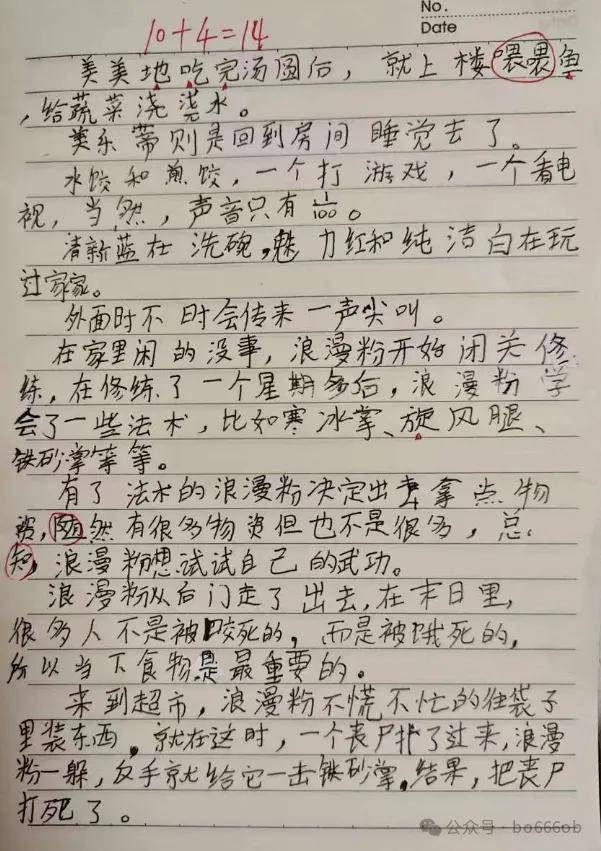 No.
Date
10+4=14
美美地吃完汤圆后，就上楼喂喂鱼
，给蔬菜浇浇水。
美乐蒂则是回到房间睡觉去了。
水饺和煎饺，一个打游戏，一个看电
视，当然，声音只有1/100。
清新蓝在洗碗，魅力红和纯洁白在玩
过家家。
外面时不时会传来一声尖叫。
在家里闲的没事，浪漫粉开始闭关修
练，在修练了一个星期多后，浪漫粉学
会了一些法术，比如寒冰掌、旋风腿、
铁砂掌等等。
有了法术的浪漫粉决定出去拿点物
资，然有很多物资但也不是很多，总
知，浪漫粉想试试自己的武功。
浪漫粉从后门走了出去，在末日里，
很多人不是被咬死的，而是被饿死的，
所以当下食物是最重要的。
来到超市，浪漫粉不慌不忙的往袋子
里装东西。就在这时，一个丧尸扑了过来，浪漫
粉一躲，反手就给它一击铁砂掌。结果，把丧尸
打死了。
公众号·bo666ob